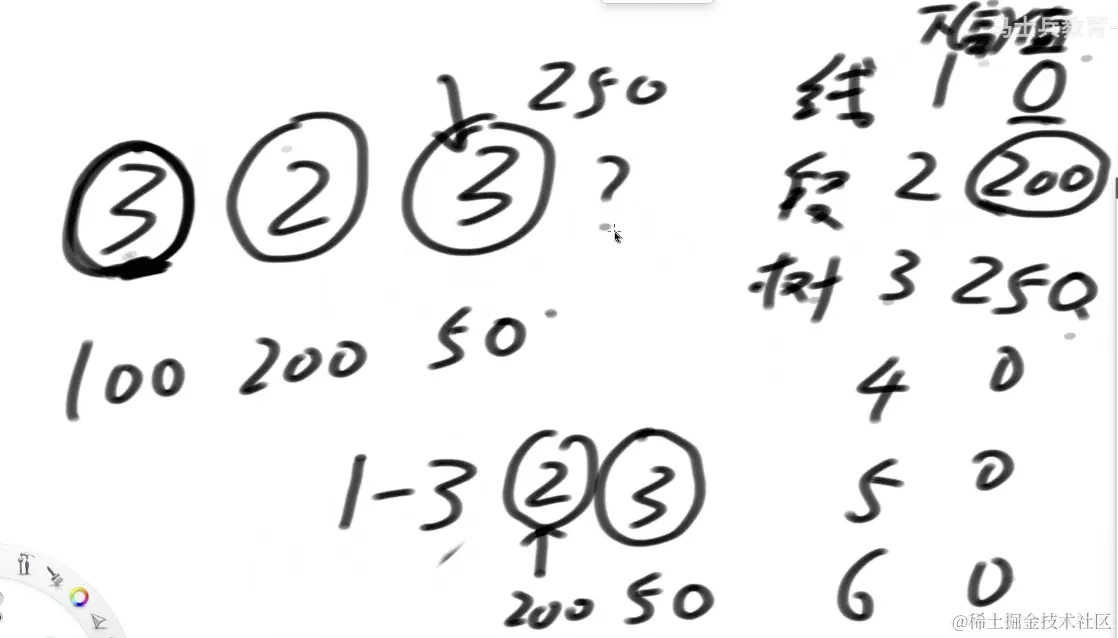 马士兵教育
线 1 0
250
3 2 3 ?
段 2 200
树 3 250
100 200 50
4 0
1-3 2 3
5 0
200 50
6 0
@稀土掘金技术社区